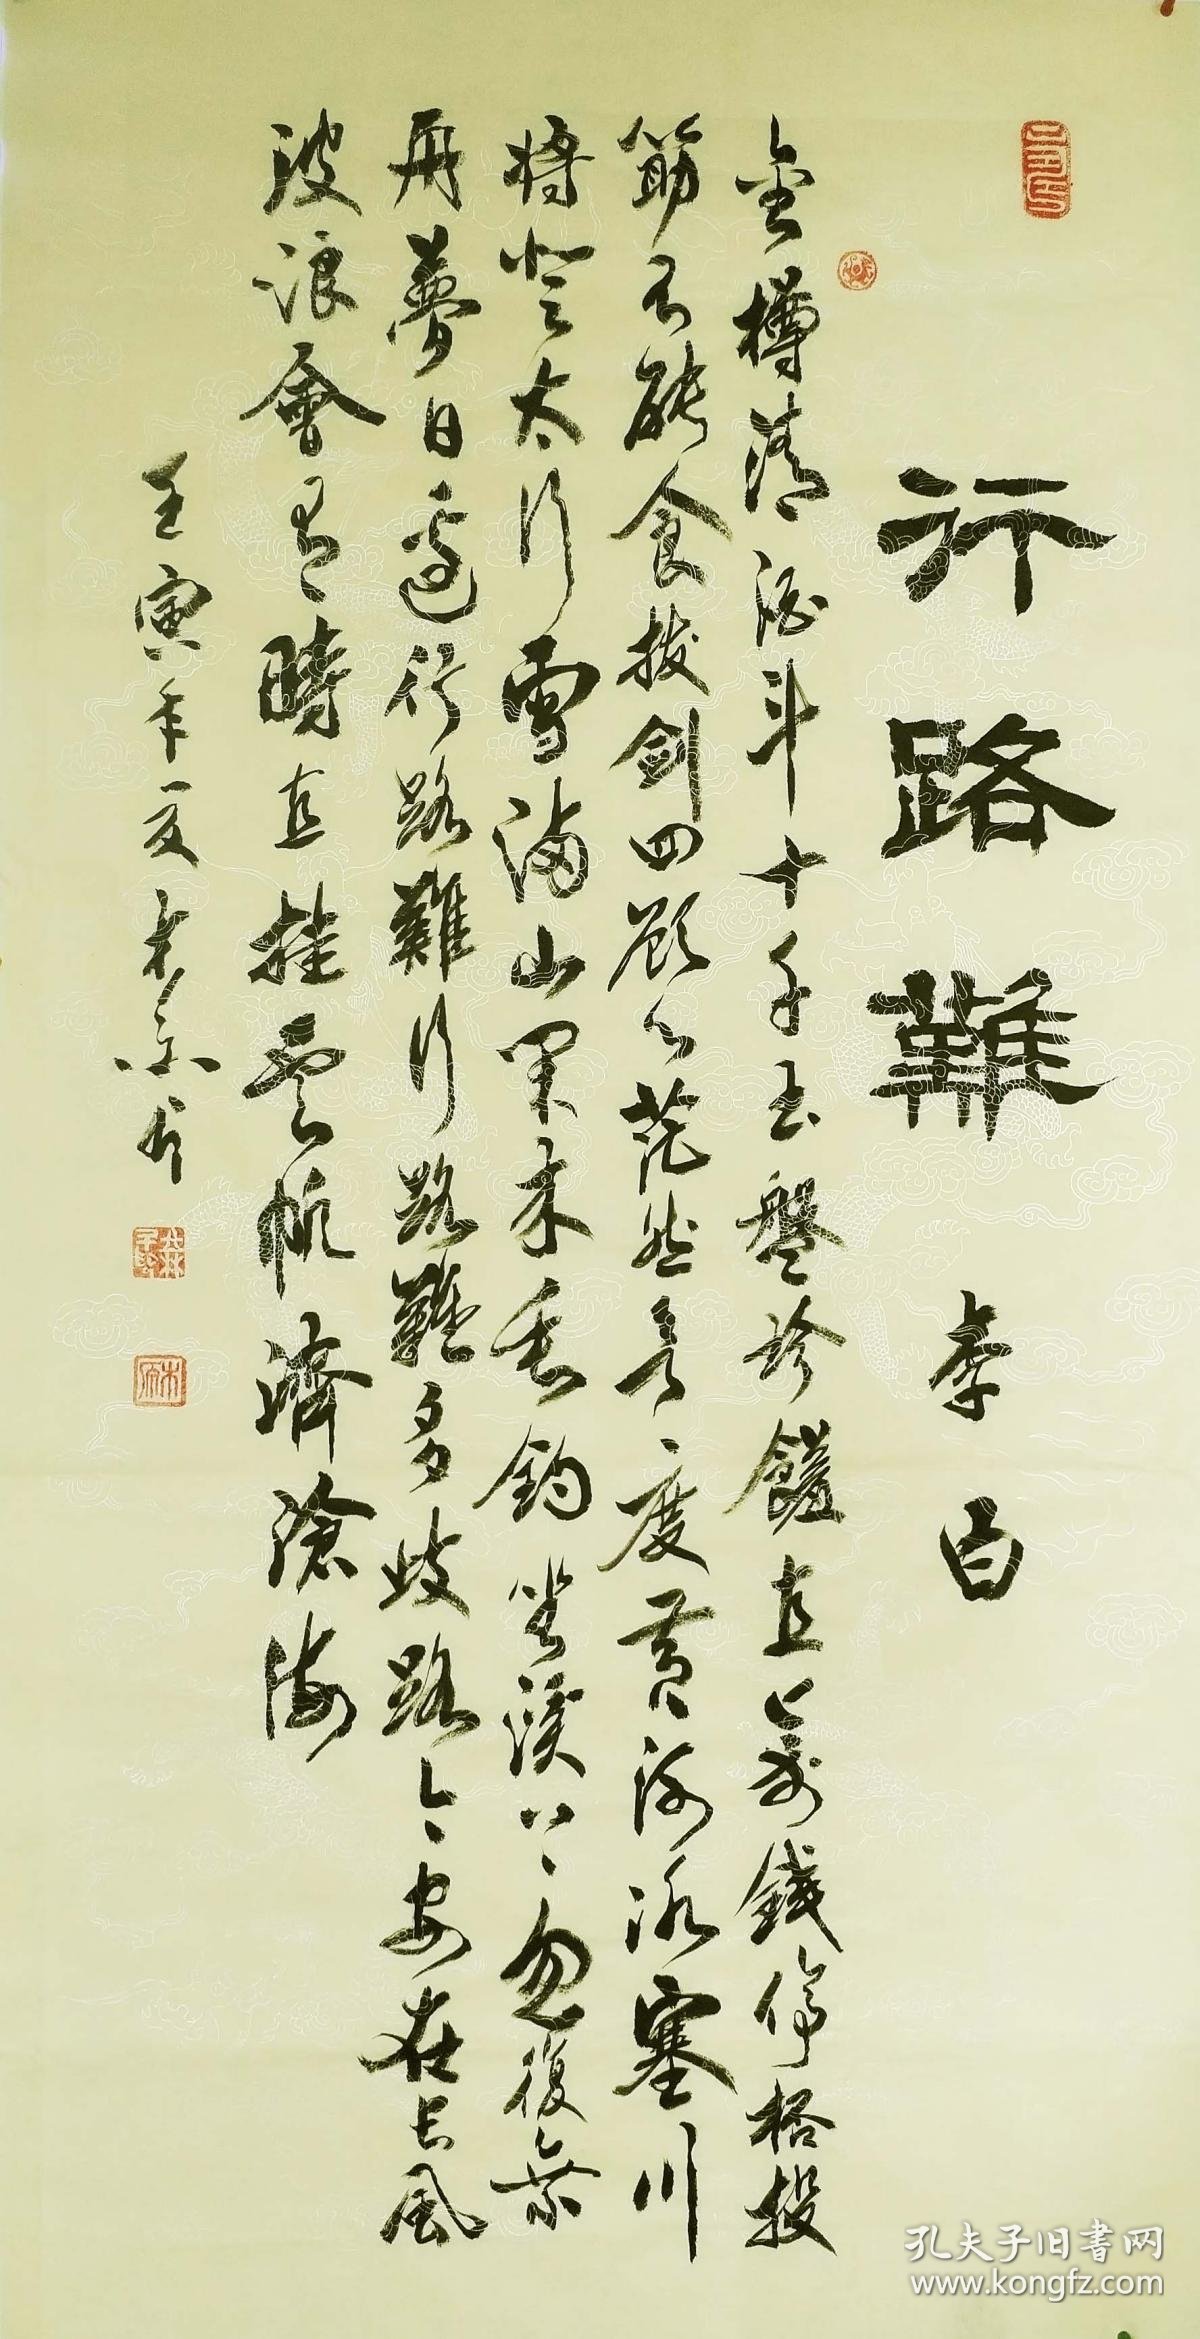 行路難 李白
金樽清酒斗十千玉盤珍饈直萬錢停桮投
筯不能食拔劍四顧心茫然欲度黃河冰塞川
將登太行雪滿山閑來垂釣坐溪上忽復乘
舟夢日邊行路難行路難多歧路今安在長風
破浪會有時直挂雲帆濟滄海
壬寅年夏
孔夫子旧書网
www.kongfz.com